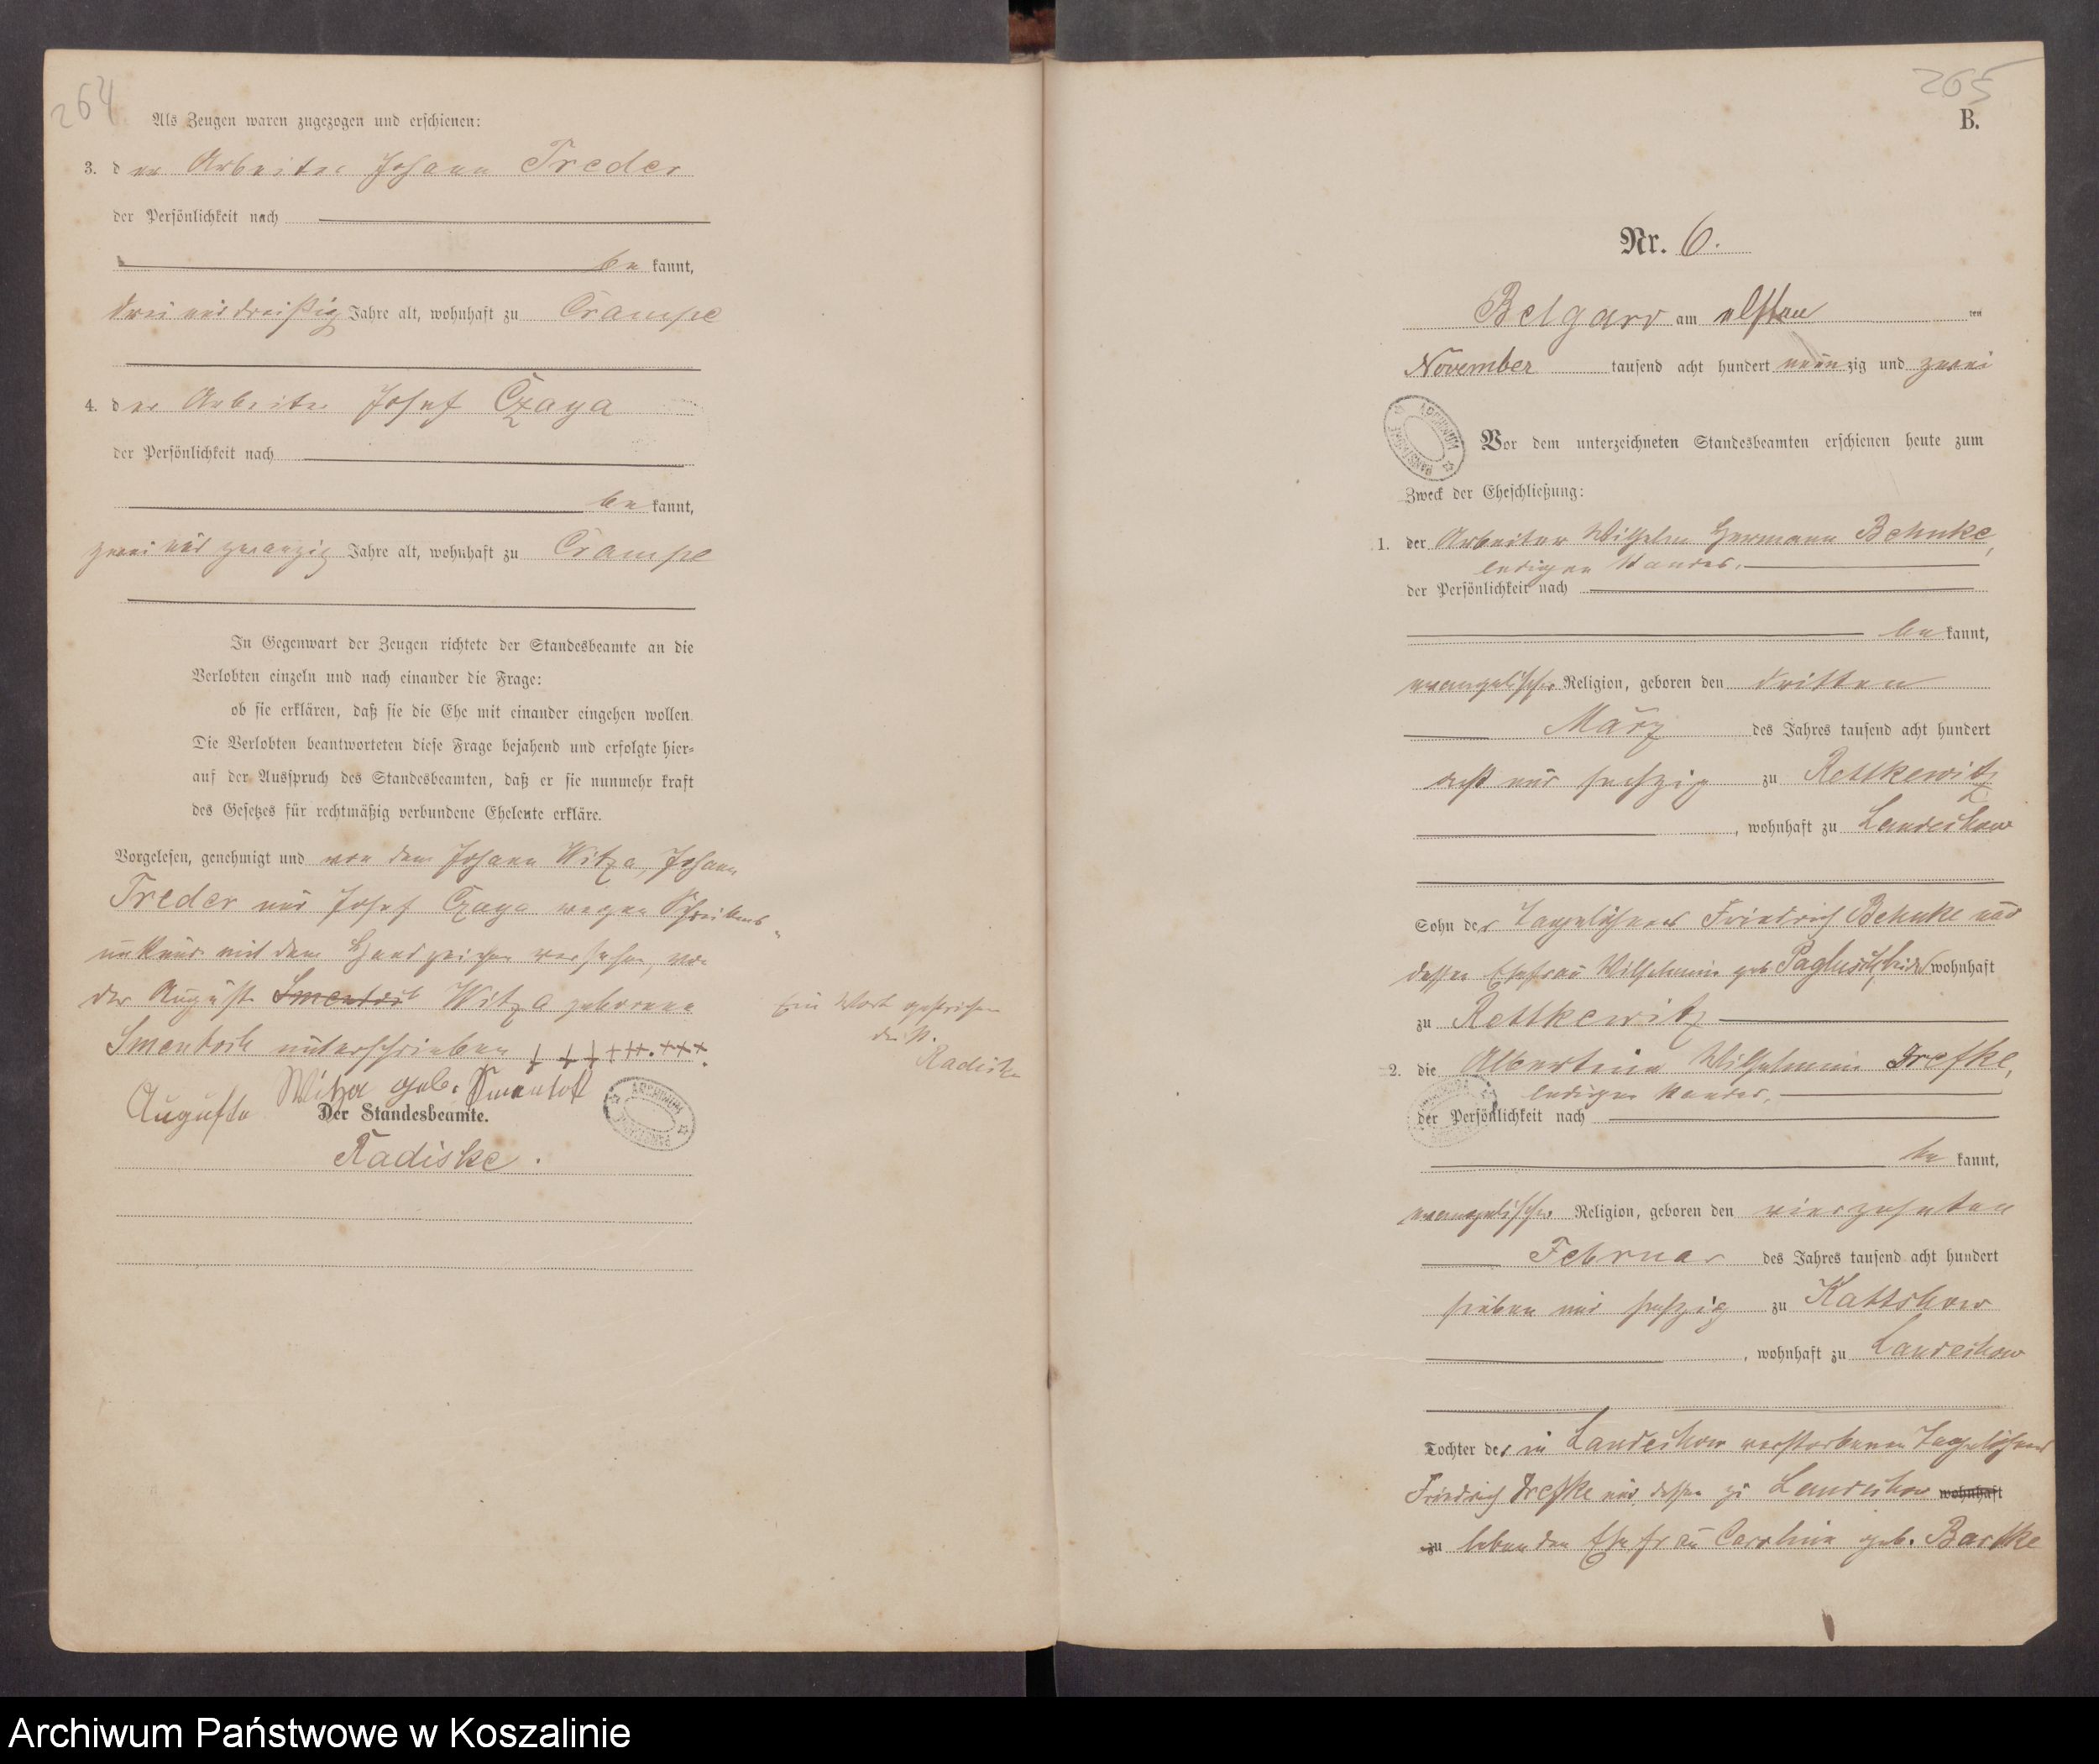 264
Als Zeugen waren zugezogen und erschienen:
3. der Arbeiter Johann Treder
der Persönlichkeit nach
bekannt,
drei und dreißig Jahre alt, wohnhaft zu Crampe
4. der Arbeiter Josef Czaya
der Persönlichkeit nach
bekannt,
zwei und zwanzig Jahre alt, wohnhaft zu Crampe
In Gegenwart der Zeugen richtete der Standesbeamte an die
Verlobten einzeln und nach einander die Frage:
ob sie erklären, daß sie die Ehe mit einander eingehen wollen.
Die Verlobten beantworteten diese Frage bejahend und erfolgte hier-
auf der Ausspruch des Standesbeamten, daß er sie nunmehr kraft
des Gesetzes für rechtmäßig verbundene Eheleute erkläre.
Vorgelesen, genehmigt und von dem Johann Witza, Johann
Treder und Josef Czaya wegen Schreibens-
unkunde mit dem Handzeichen versehen, von
der Auguste Smentock Witza geborene
Smentock unterschrieben +++ +++. +++.
Ein Wort gestrichen
der St.
Radiske
Auguste Witza geb. Smentok
Der Standesbeamte.
Radiske.
ARCHIWUM PAŃSTWOWE
265
B.
Nr. 6.
Belgard am elften ten
November tausend acht hundert neunzig und zwei
ARCHIWUM PAŃSTWOWE
Vor dem unterzeichneten Standesbeamten erschienen heute zum
Zweck der Eheschließung:
1. der Arbeiter Wilhelm Hermann Behnke,
ledigen Standes,
der Persönlichkeit nach
bekannt,
evangelischer Religion, geboren den dritten
März des Jahres tausend acht hundert
acht und sechzig zu Rettkewitz
, wohnhaft zu Landechow
Sohn des Tagelöhners Friedrich Behnke und
dessen Ehefrau Wilhelmine geb. wohnhaft
zu Rettkewitz
2. die Albertine Wilhelmine Drefke,
ledigen Standes,
der Persönlichkeit nach
bekannt,
evangelischer Religion, geboren den vierzehnten
Februar des Jahres tausend acht hundert
sieben und sechzig zu Kattschow
, wohnhaft zu Landechow
Tochter des in Landechow verstorbenen Tagelöhners
Friedrich Drefke und dessen zu Landechow wohnhaft
zu lebenden Ehefrau Caroline geb. Bartke
Archiwum Państwowe w Koszalinie